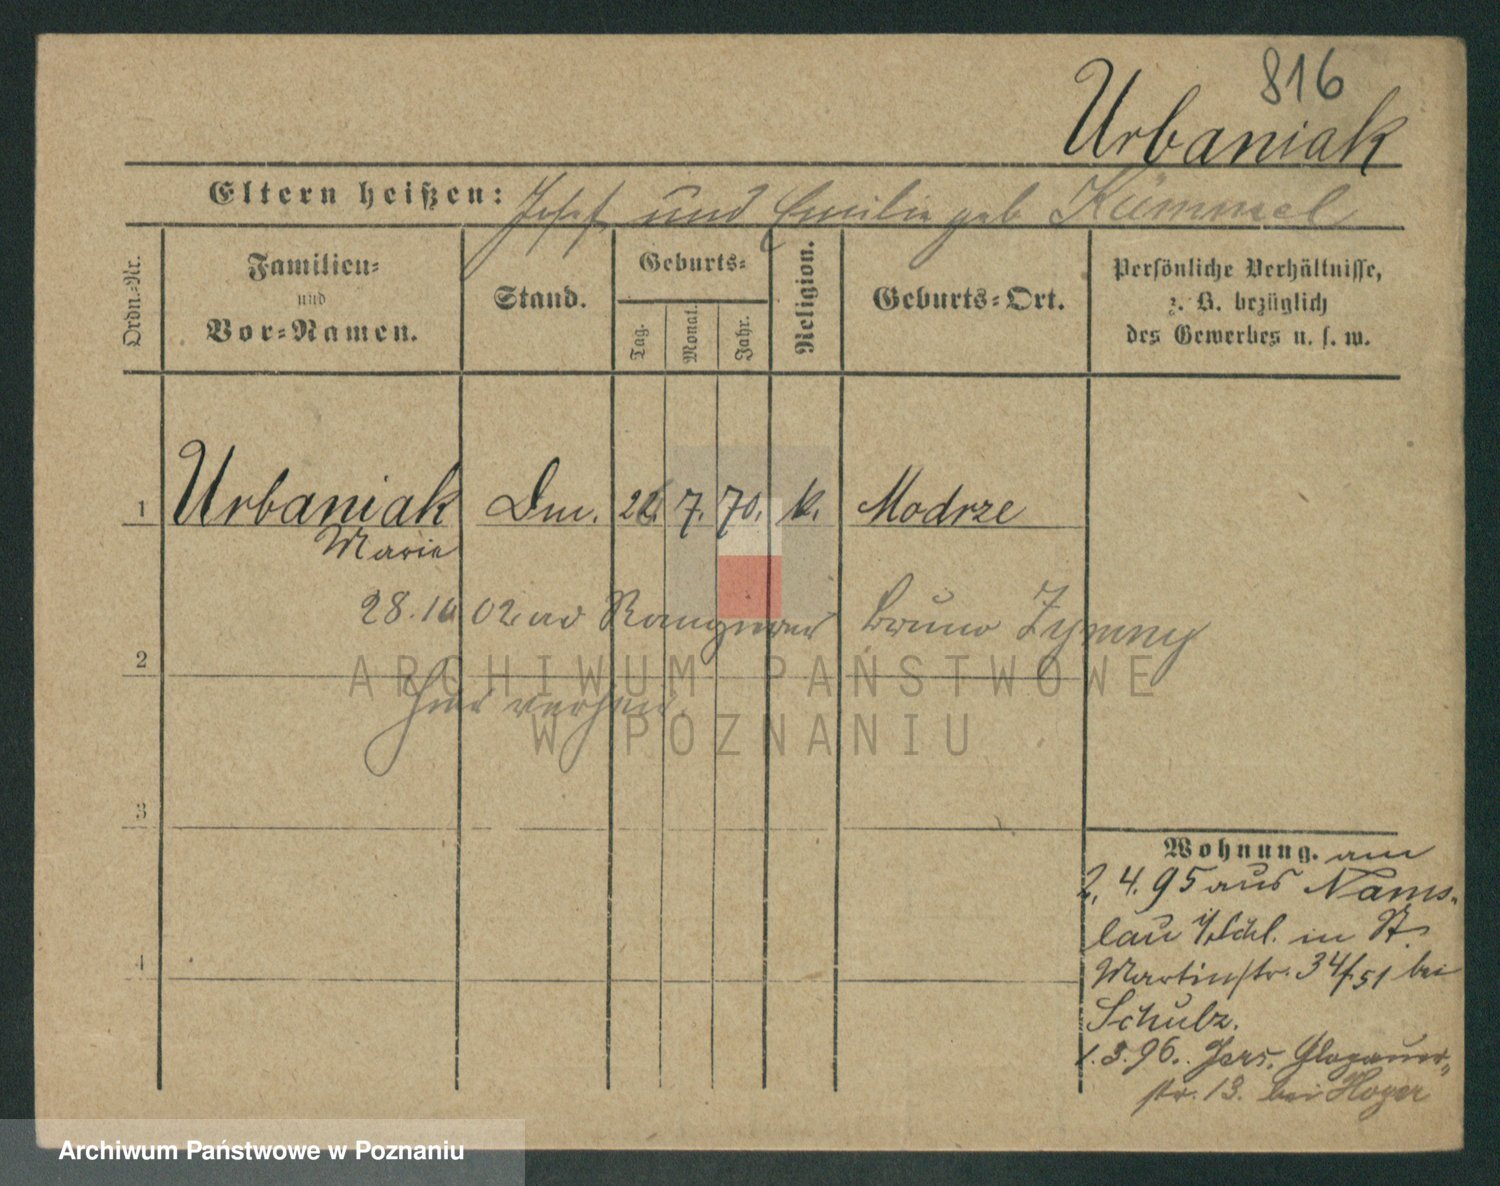 816
Urbaniak
Eltern heißen: Josef und Emilie geb Kümmel
Ordn.-Nr.
Familien-
und
Vor-Namen.
Stand.
Geburts-
Tag.
Monat.
Jahr.
Religion.
Geburts-Ort.
Persönliche Verhältnisse,
z. B. bezüglich
des Gewerbes u. s. w.
1 Urbaniak Dm. 7. 70. k. Modrze
Marie
28.10 02 Bruno Zymny
2
hier
ARCHIWUM PAŃSTWOWE
W POZNANIU
3
4
Wohnung. am
2. 4. 95 aus Nams-
lau i/Schl. in St.
Martinstr. 34/51 bei
Schulz.
1.3.96. Jers. Glogauer-
str. 13. bei Hoyer
Archiwum Państwowe w Poznaniu